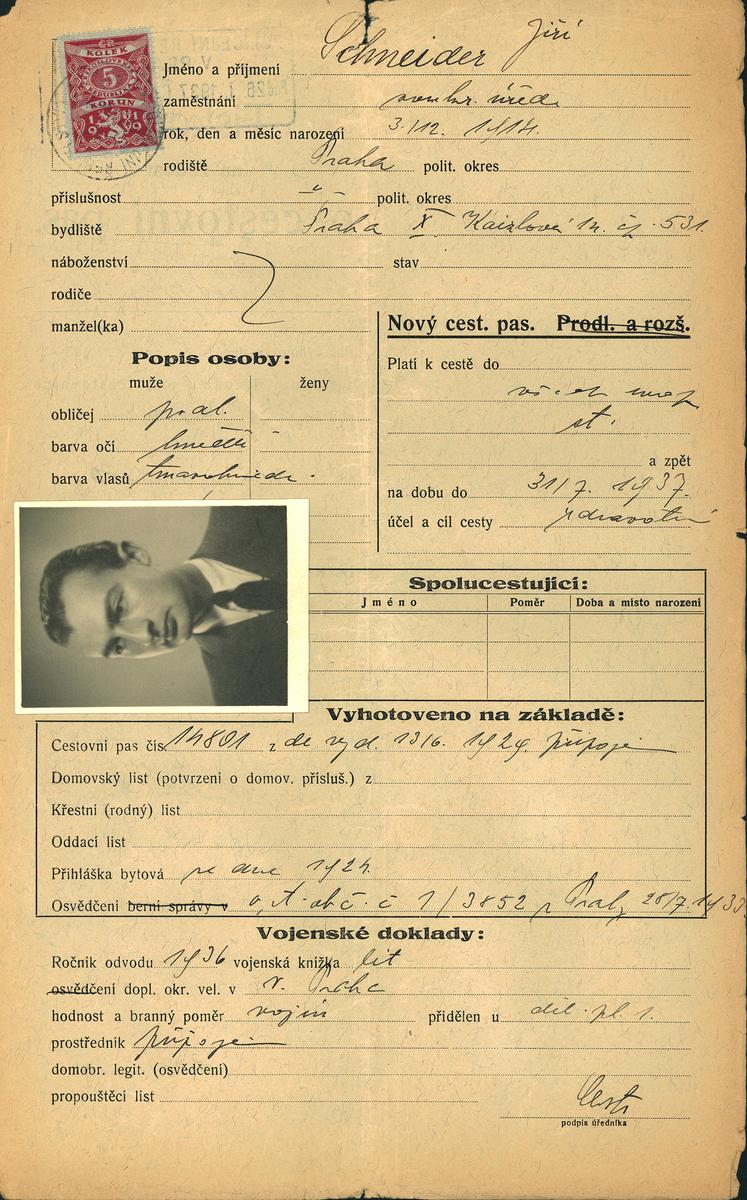 KOLEK
5
KORUN
1919
Jméno a příjmení Schneider Jiří
zaměstnání soukr. úřed.
rok, den a měsíc narození 3./12. 1914.
rodiště Praha polit. okres
příslušnost -"- polit. okres
bydliště Praha X. Kaizlovy čp. 531.
náboženství stav
rodiče
manžel(ka)
Nový cest. pas. Prodl. a rozš.
Popis osoby:
muže ženy
obličej
barva očí hnědé
barva vlasů tmavohnědé.
Platí k cestě do
st.
a zpět
na dobu do 31/7. 1937.
účel a cíl cesty zdravotní
Spolucestující:
Jméno Poměr Doba a místo narození
Vyhotoveno na základě:
Cestovní pas čís. 14801 z de vyd. 13/6. 1929. připojen
Domovský list (potvrzení o domov. přísluš.) z
Křestní (rodný) list
Oddací list
Přihláška bytová ze dne 1924.
Osvědčení berní správy v o, st. obč. č 1/3852 z Prahy 28/7. 1933
Vojenské doklady:
Ročník odvodu 1936 vojenská knížka list
osvědčení dopl. okr. vel. v v. Praha
hodnost a branný poměr vojín přidělen u děl. pl. 1.
prostředník připojen
domobr. legit. (osvědčení)
propouštěcí list
podpis úředníka